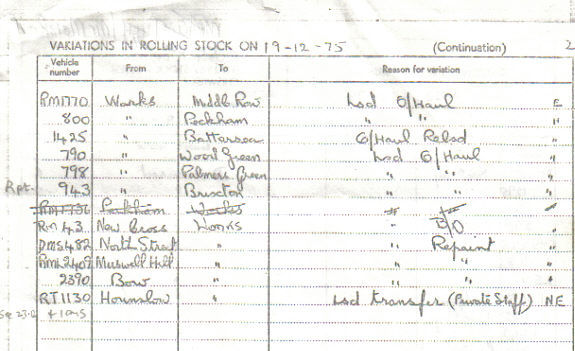 VARIATIONS IN ROLLING STOCK ON 19-12-75 (Continuation) 2
Vehicle number From To Reason for variation
RM1770 Works Middle Row Lsd O/Haul E
800 " Peckham " " "
1425 " Battersea O/Haul Relsd "
790 " Wood Green Lsd O/Haul "
798 " Palmers Green " " "
Rpt. 943 " Brixton " " "
Peckham Works " "
RM 43 New Cross Works " B/O "
DMS482 North Street " " Repaint "
RML2409 Muswell Hill " " " "
2390 Bow " " " "
RT1130 Hounslow " Lsd transfer (Private Staff) NE